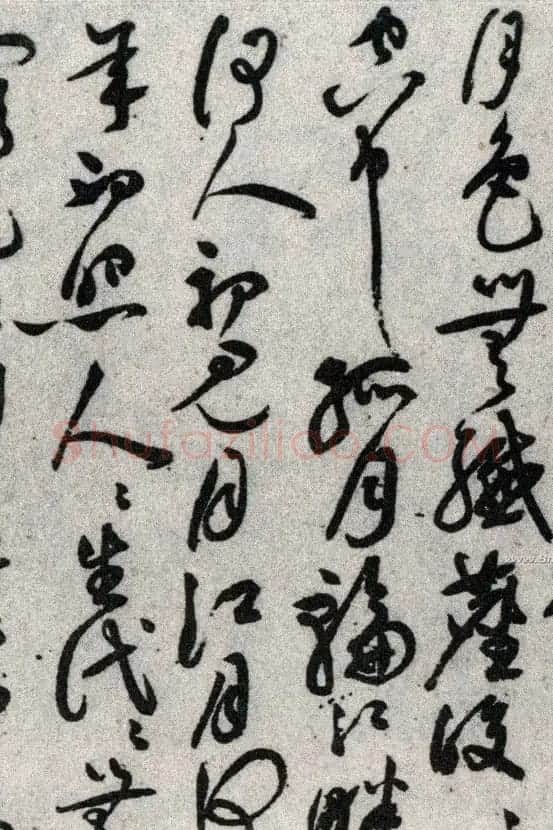 月色無纖塵皎〻
空中孤月輪江畔
何人初見月江月何
年初照人〻生代〻無
Shufaziliao.COM